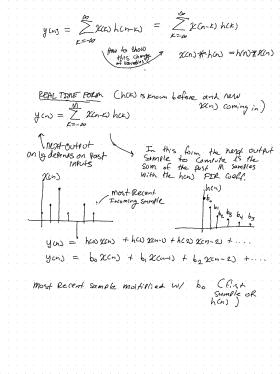 y(n) = ∞ Σ k=-∞ x(k) h(n-k) = ∞ Σ k=-∞ x(n-k) h(k)
How to show this change of variables
x(n) * h(n) = h(n) * x(n)
REAL TIME FORM (h(k) is known before and new x(n) coming in)
y(n) = M Σ k=-∞ x(n-k) h(k)
Next output only depends on Past inputs
In this form the next output sample to compute is the sum of the past M samples with the h(n) FIR coeff.
x(n)
most Recent Incoming sample
h(n)
b₀ b₁ b₂ b₃ b₄ b₅
y(n) = h(0) x(n) + h(1) x(n-1) + h(2) x(n-2) + ....
y(n) = b₀ x(n) + b₁ x(n-1) + b₂ x(n-2) + ----
most Recent sample multiplied w/ b₀ (first sample of h(n))